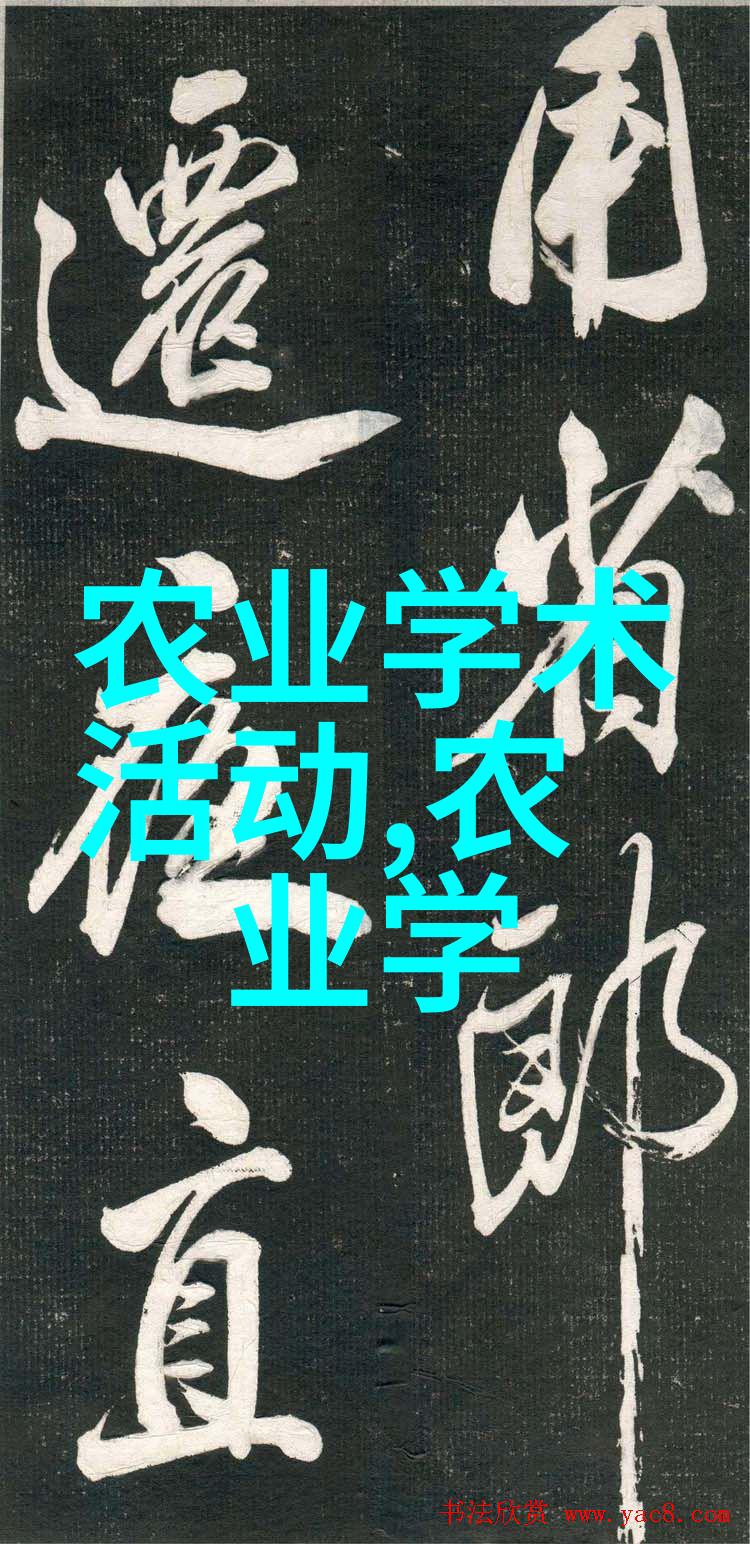 用省郎
直
农业学术
活动,农
业学
书法欣赏 www.yac8.com